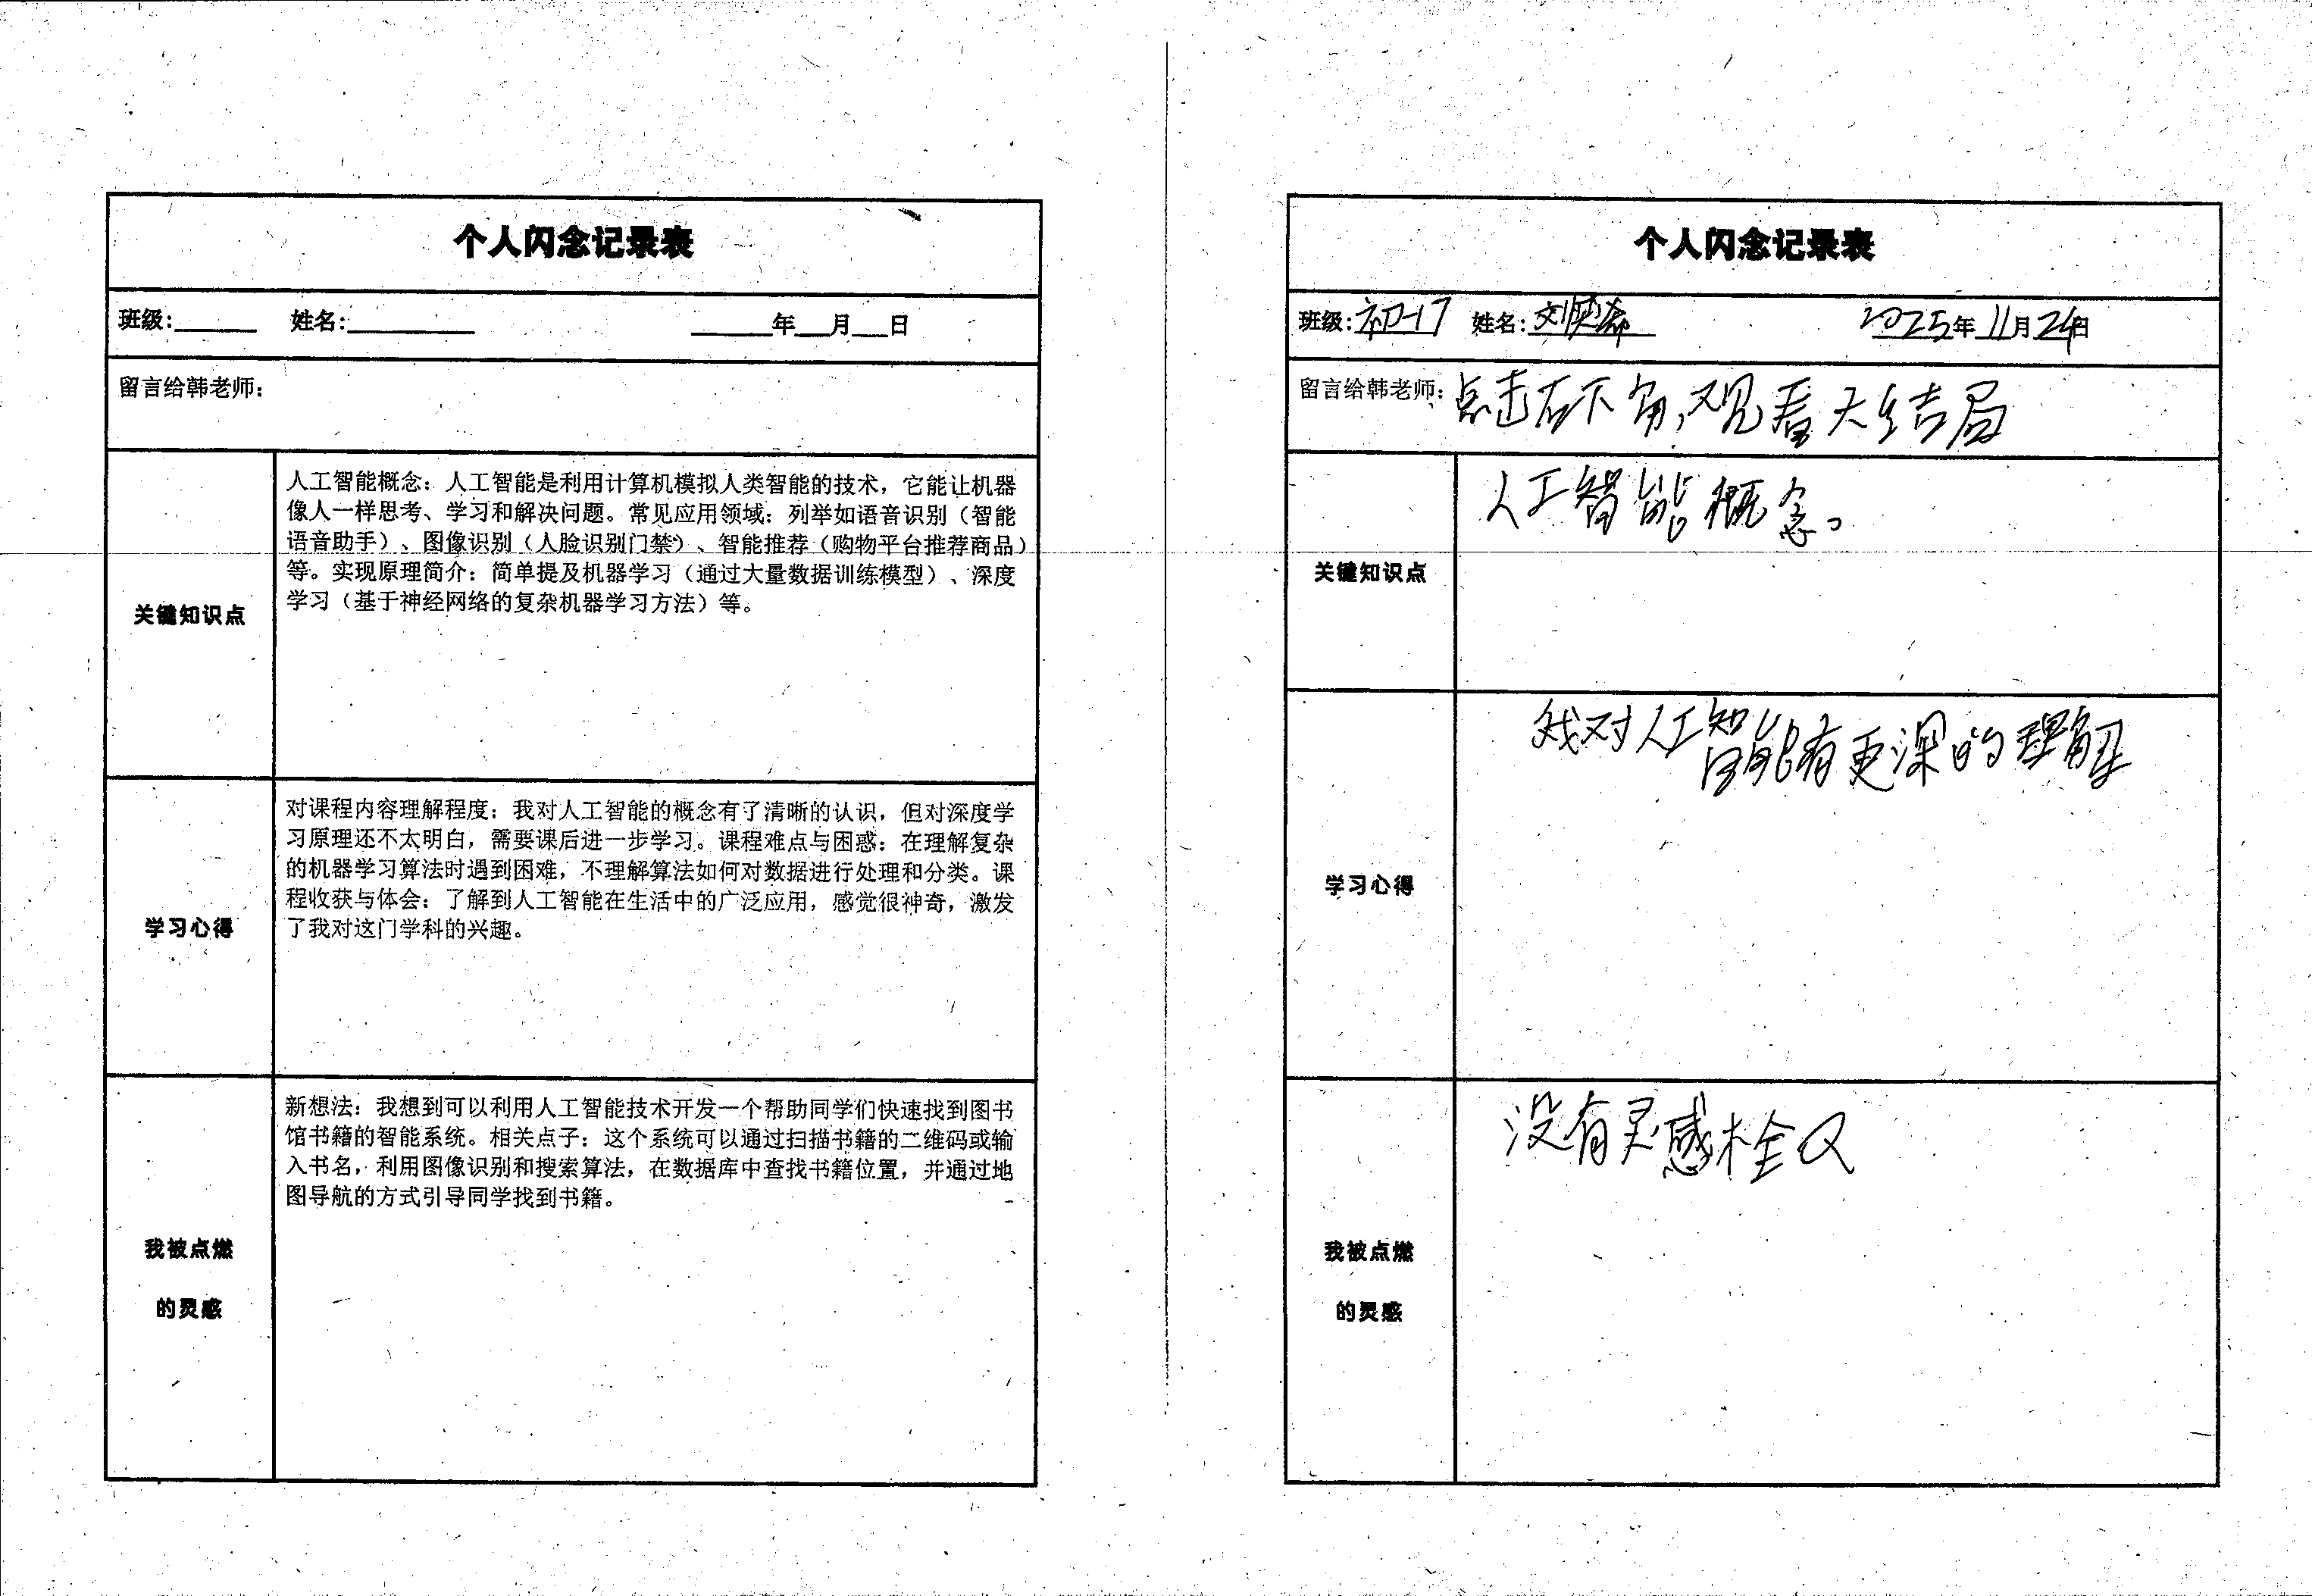 个人闪念记录表
班级:______ 姓名:_______ _____年__月__日
留言给韩老师:
关键知识点
人工智能概念：人工智能是利用计算机模拟人类智能的技术，它能让机器
像人一样思考、学习和解决问题。常见应用领域：列举如语音识别（智能
语音助手）、图像识别（人脸识别门禁）、智能推荐（购物平台推荐商品）
等。实现原理简介：简单提及机器学习（通过大量数据训练模型）、深度
学习（基于神经网络的复杂机器学习方法）等。
学习心得
对课程内容理解程度：我对人工智能的概念有了清晰的认识，但对深度学
习原理还不太明白，需要课后进一步学习。课程难点与困惑：在理解复杂
的机器学习算法时遇到困难，不理解算法如何对数据进行处理和分类。课
程收获与体会：了解到人工智能在生活中的广泛应用，感觉很神奇，激发
了我对这门学科的兴趣。
我被点燃
的灵感
新想法：我想到可以利用人工智能技术开发一个帮助同学们快速找到图书
馆书籍的智能系统。相关点子：这个系统可以通过扫描书籍的二维码或输
入书名，利用图像识别和搜索算法，在数据库中查找书籍位置，并通过地
图导航的方式引导同学找到书籍。
个人闪念记录表
班级:初一17 姓名:刘 2025年11月24日
留言给韩老师:点击右下角,观看大结局
关键知识点
人工智能概念。
学习心得
我对人工智能有更深的理解
我被点燃
的灵感
没有灵感木全又